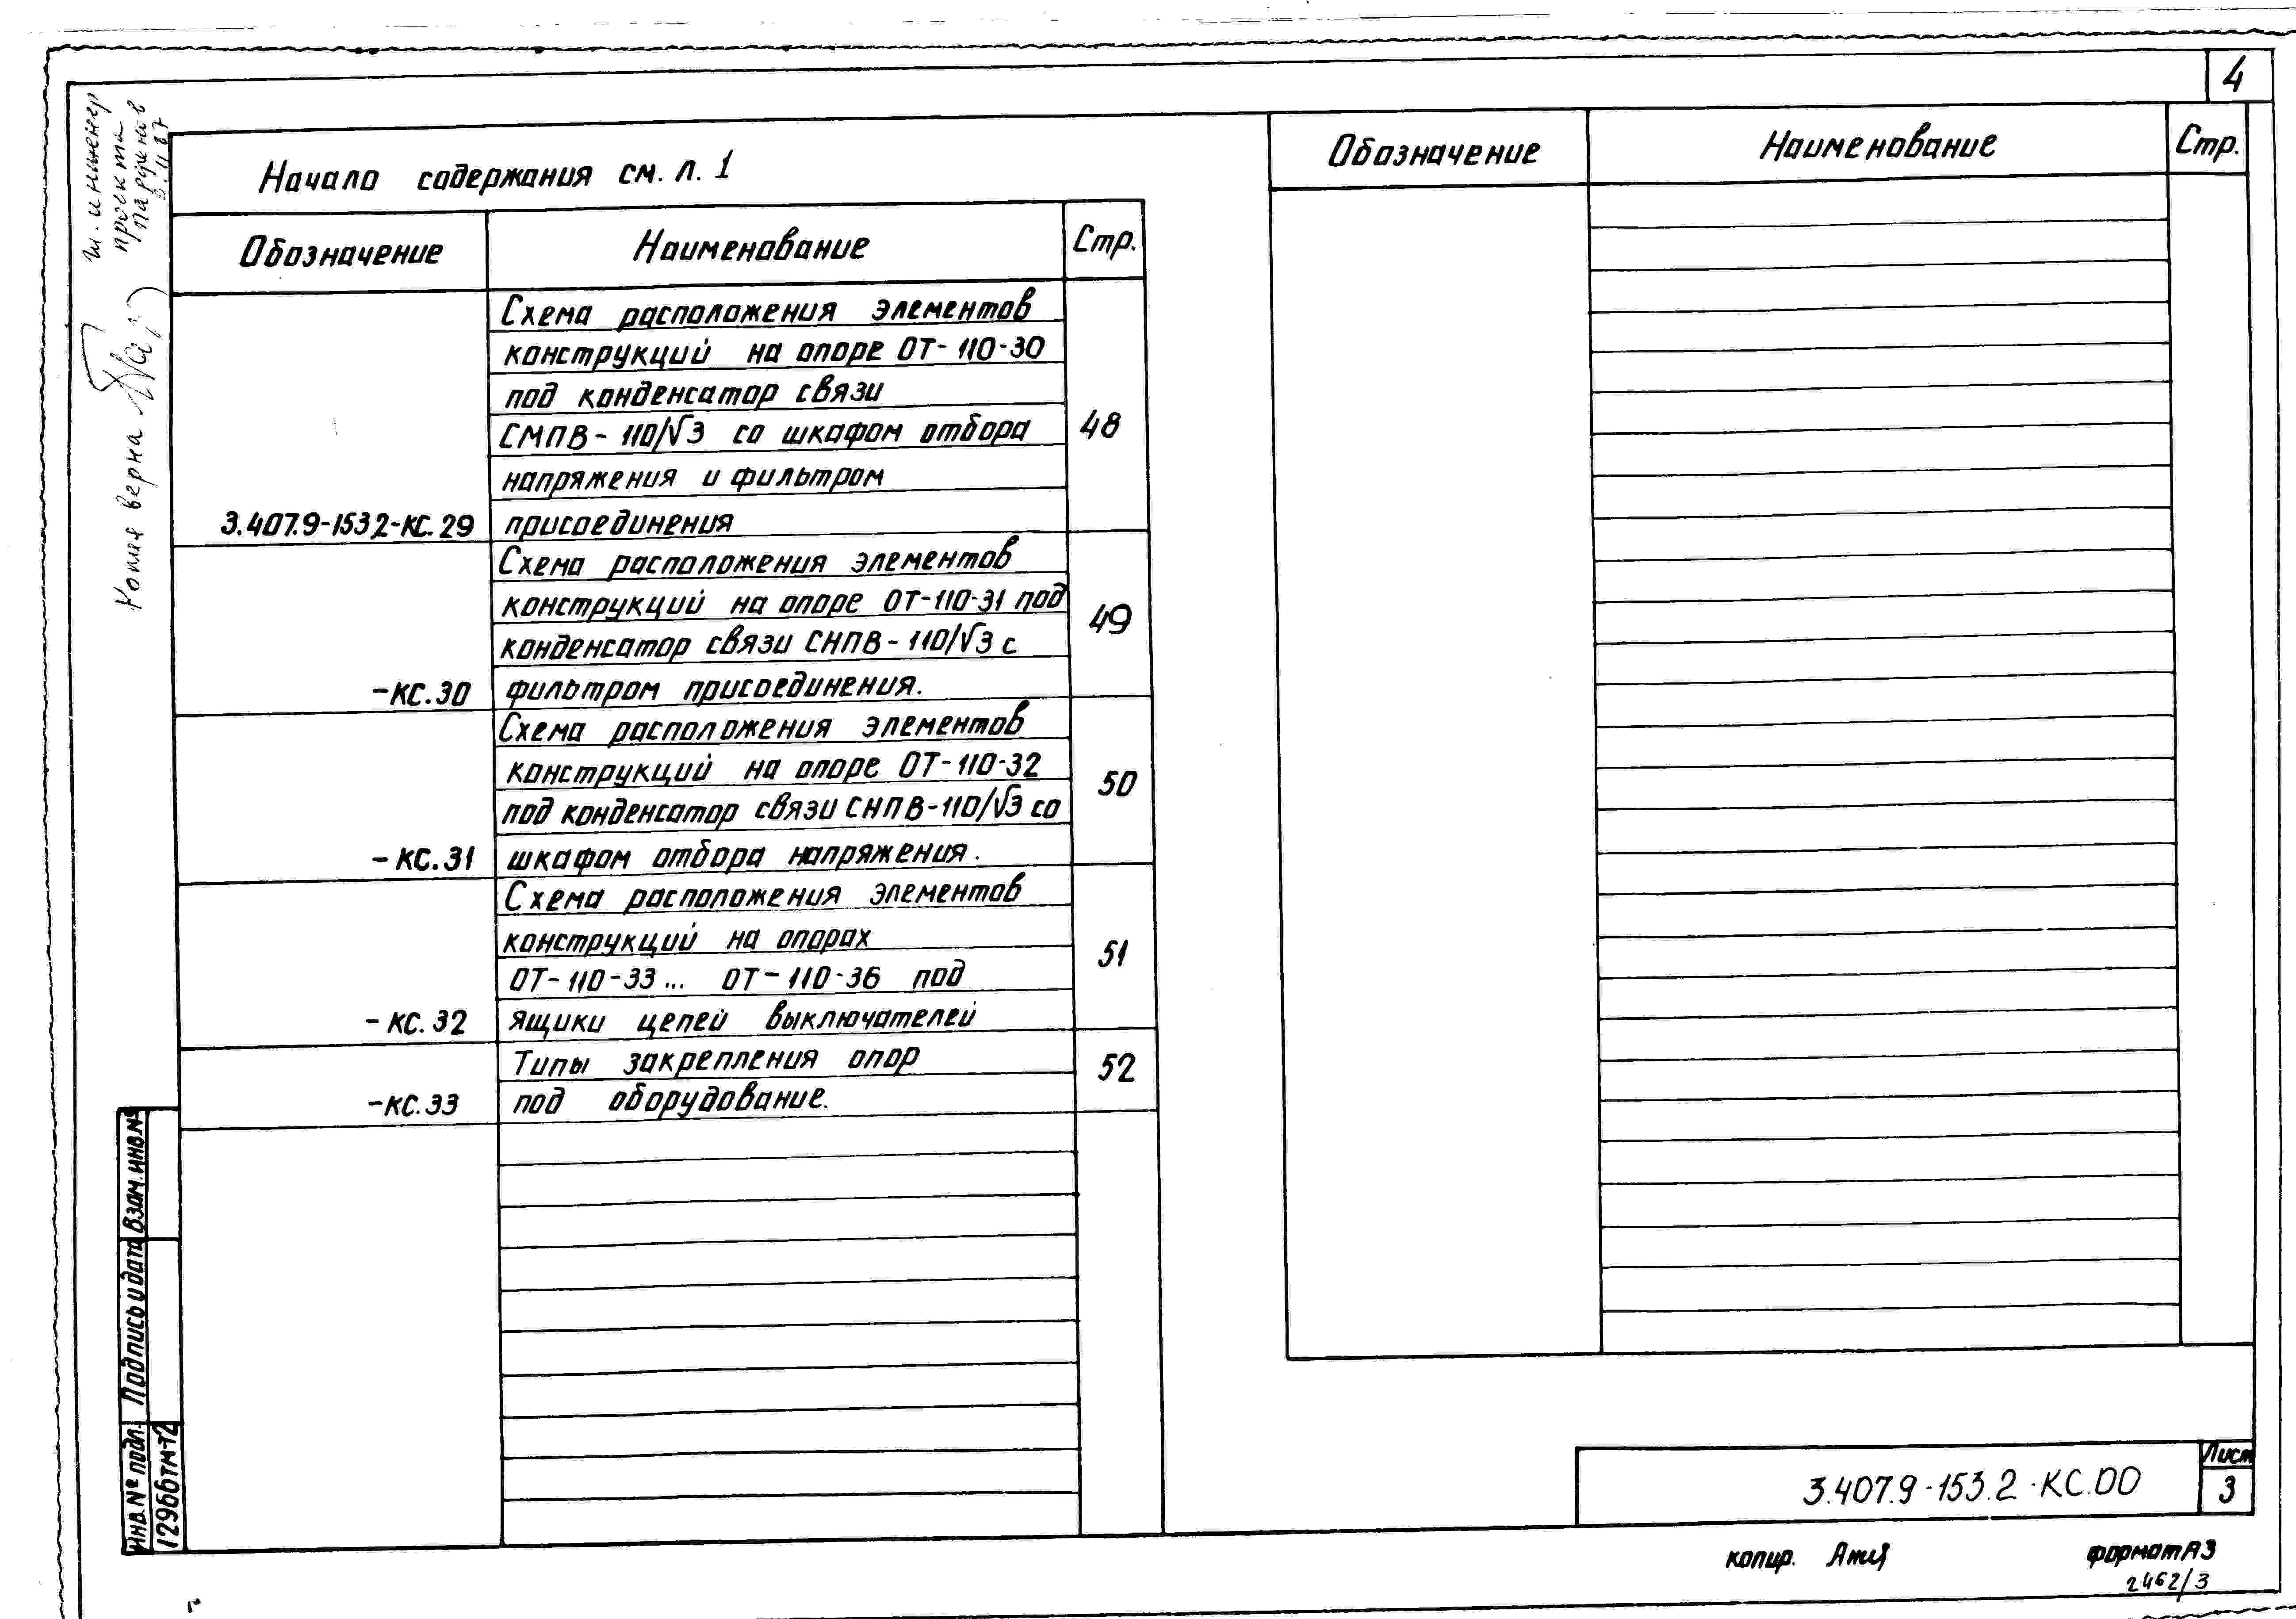 4
Начало содержания см. л. 1
Обозначение Наименование Стр.
Схема расположения элементов
конструкций на опоре ОТ-110-30
под конденсатор связи
СМПВ-110/√3 со шкафом отбора
напряжения и фильтром
3.407.9-153.2-КС.29 присоединения 48
Схема расположения элементов
конструкций на опоре ОТ-110-31 под
конденсатор связи СНПВ-110/√3 с
-КС.30 фильтром присоединения. 49
Схема расположения элементов
конструкций на опоре ОТ-110-32
под конденсатор связи СНПВ-110/√3 со
-КС.31 шкафом отбора напряжения. 50
Схема расположения элементов
конструкций на опорах
ОТ-110-33... ОТ-110-36 под
-КС.32 ящики цепей выключателей 51
Типы закрепления опор
-КС.33 под оборудование. 52
Обозначение Наименование Стр.
Копия верна
инженер
проекта
Взам. инв. №
Подпись и дата
Инв. № подл.
12966тм-т2
3.407.9-153.2-КС.00
Лист
3
копир.
формат А3
2462/3